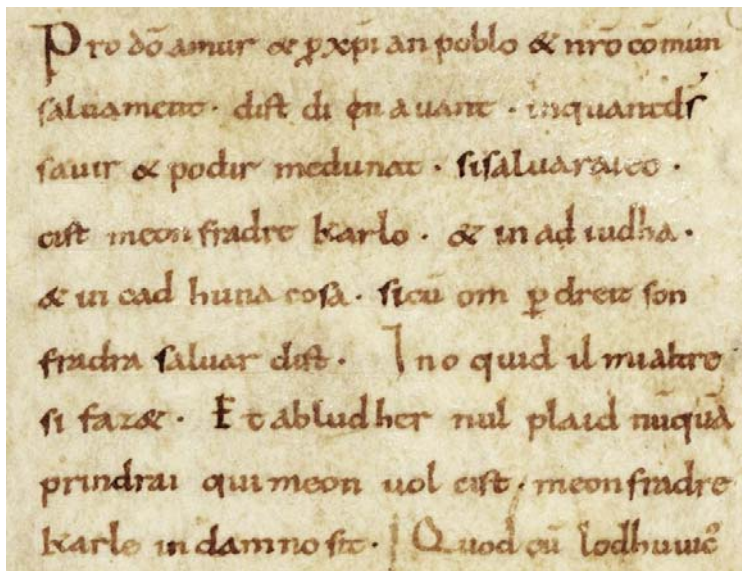 Pro dō amur & p̄ xp̄i an poblo & nr̄o cōmun
saluament · dist di en auant · inquantd̄s
sauir & podir medunat · sisaluaraieo ·
cist meon fradre karlo · & in ad iudha ·
& in cad huna cosa · sicū om p̄ dreit son
fradra saluar dist · Ino quid il mialtre
si faz& · Et abludher nul plaid nūquā
prindrai qui meon uol cist · meonfradre
karle in damno sit · Quod cū lodhuuic᾿